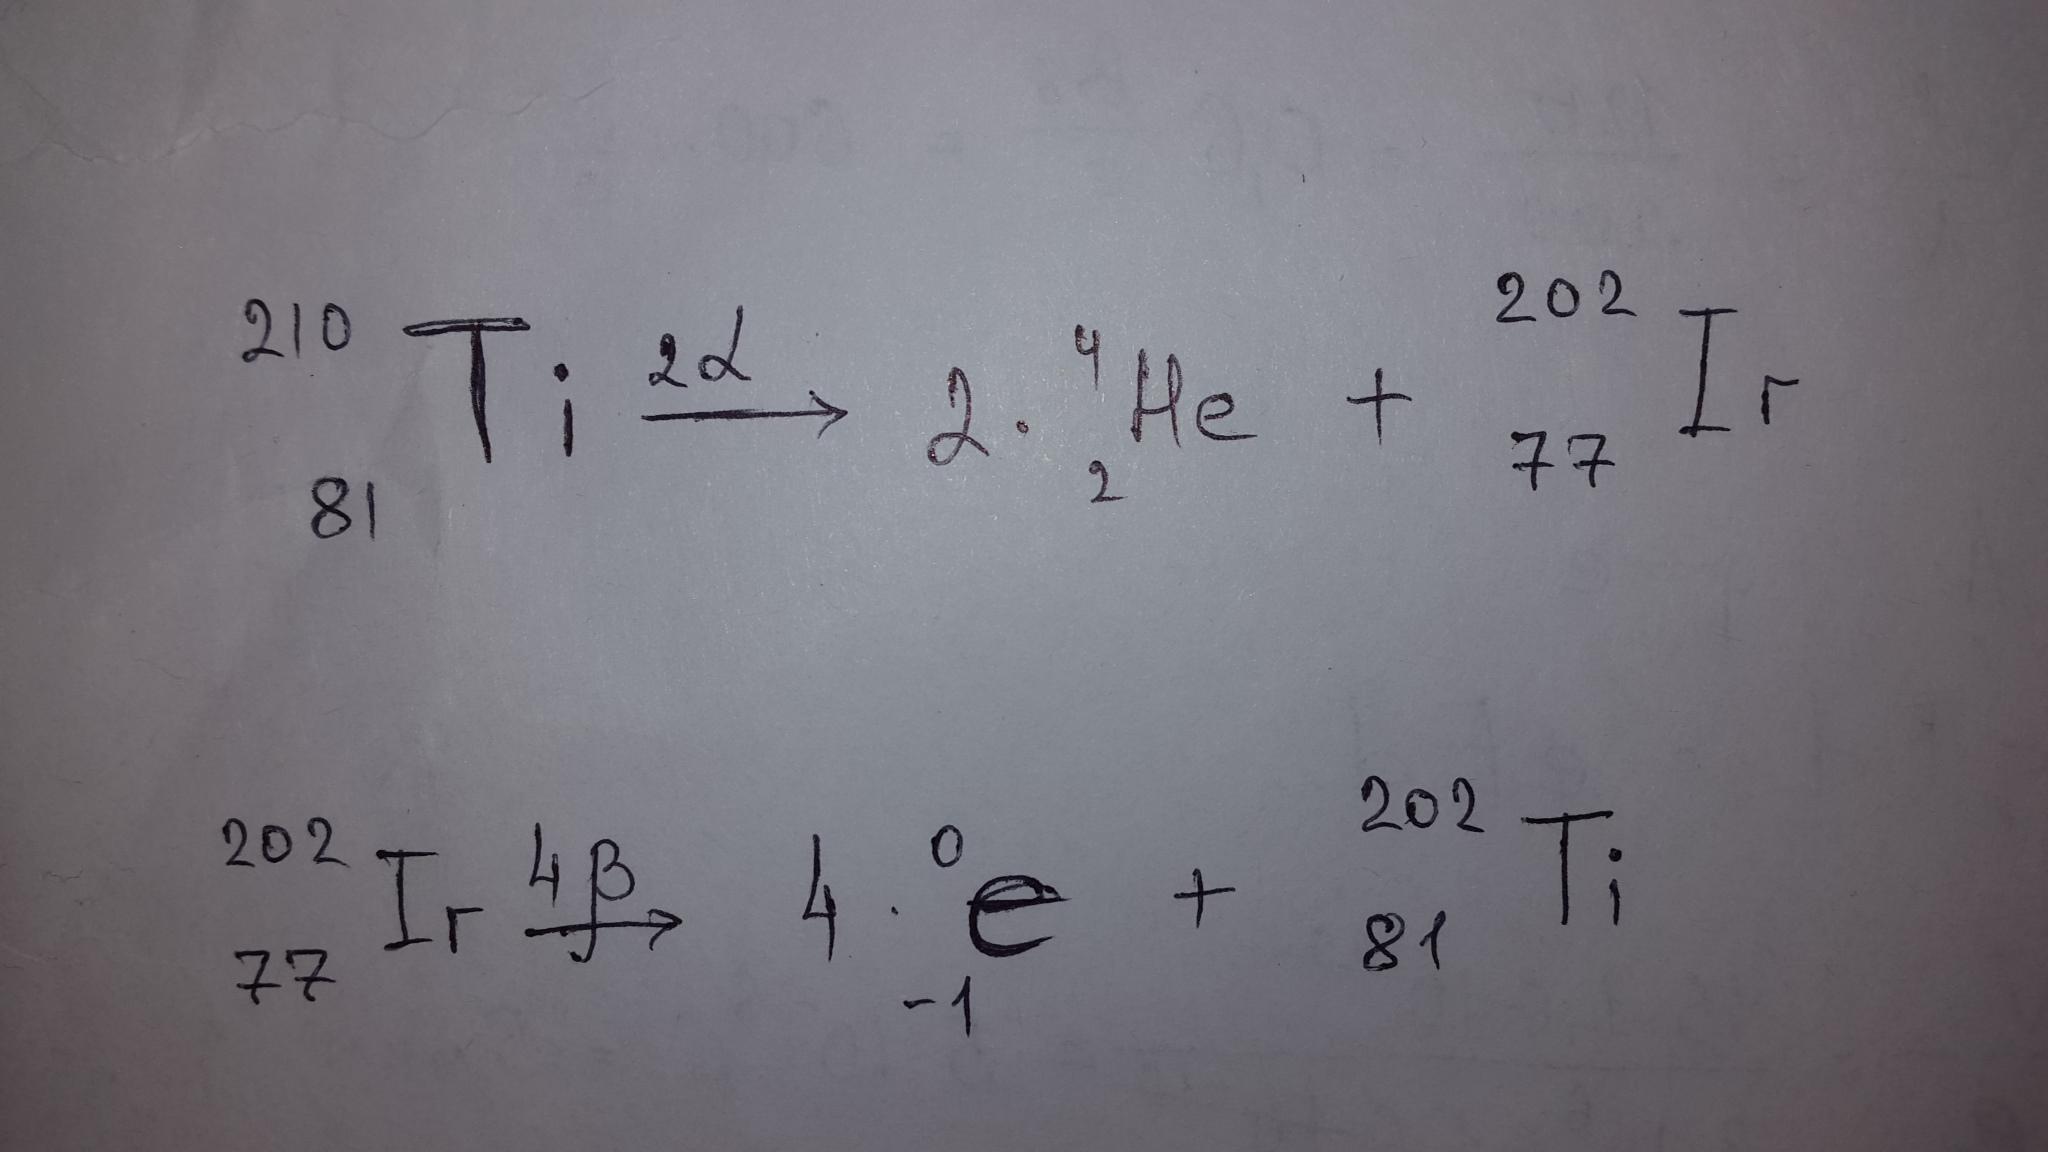 ²¹⁰₈₁Ti 2α→ 2·⁴₂He + ²⁰²₇₇Ir
²⁰²₇₇Ir 4β→ 4·⁰₋₁e + ²⁰²₈₁Ti